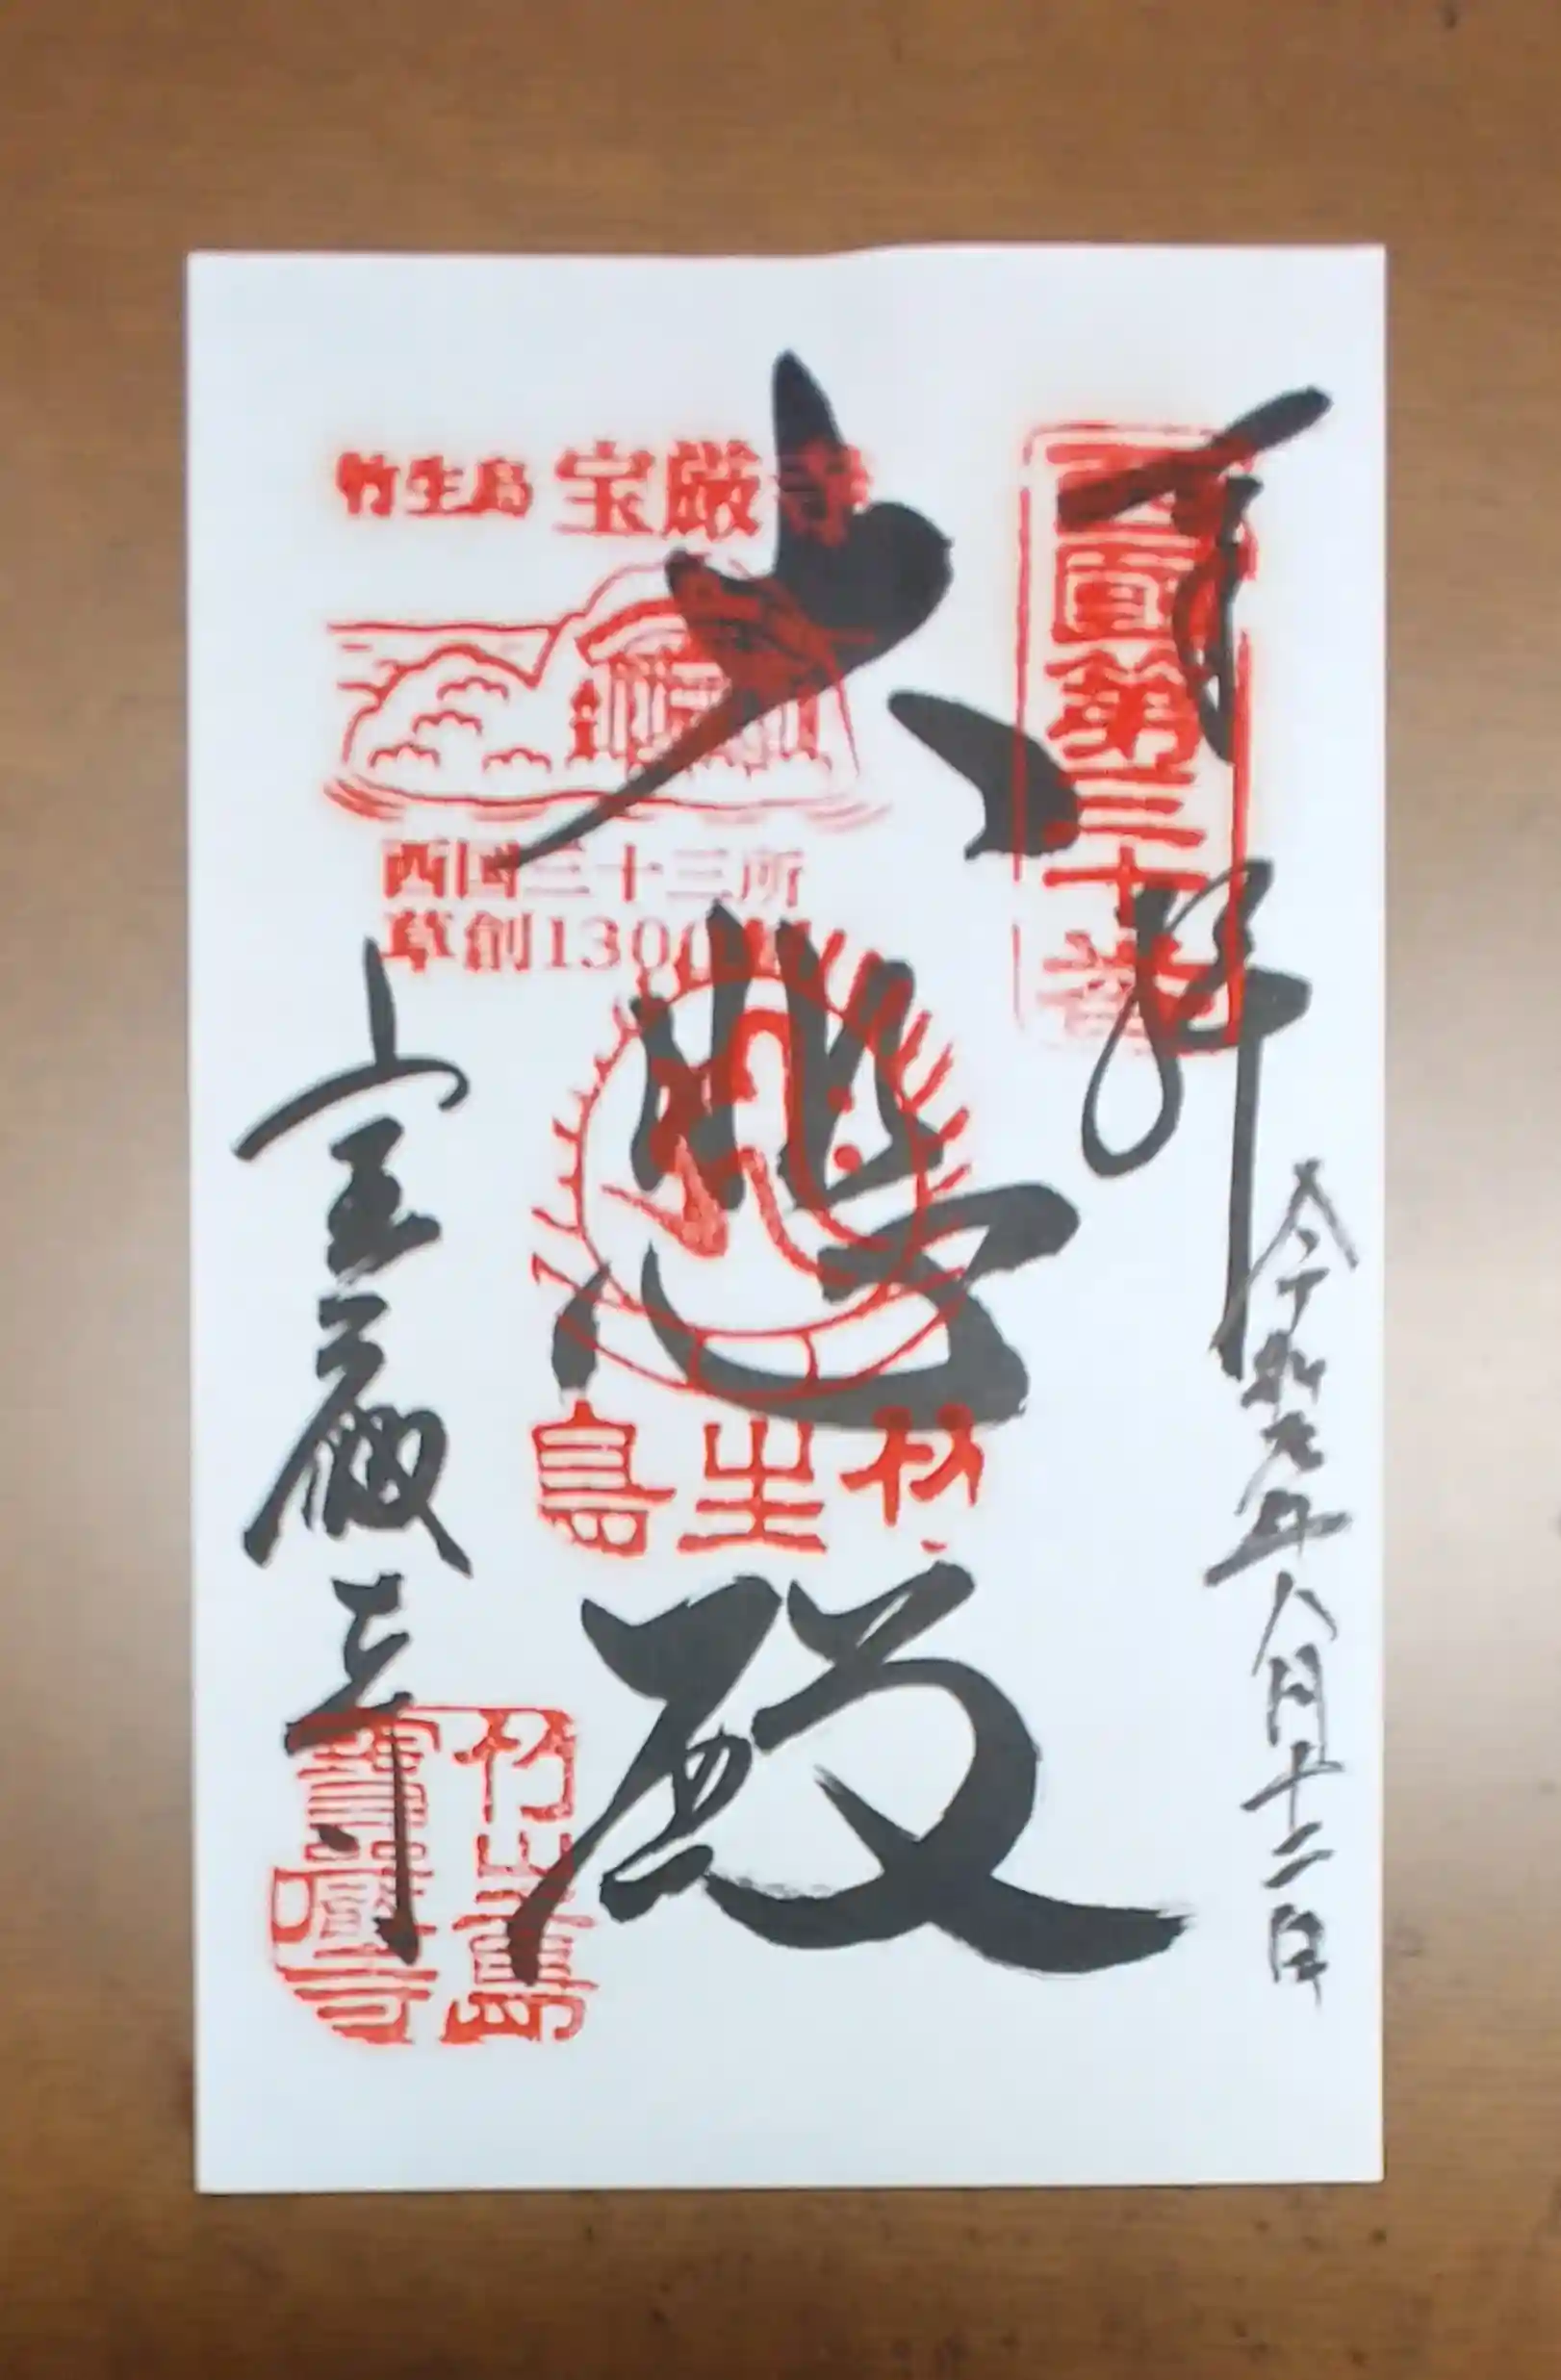 奉拝
西国第三十番
令和元年八月十二日
大悲殿
竹生島 宝厳寺
西国三十三所
草創1300年
竹生島
宝厳寺
竹生島
寶厳寺